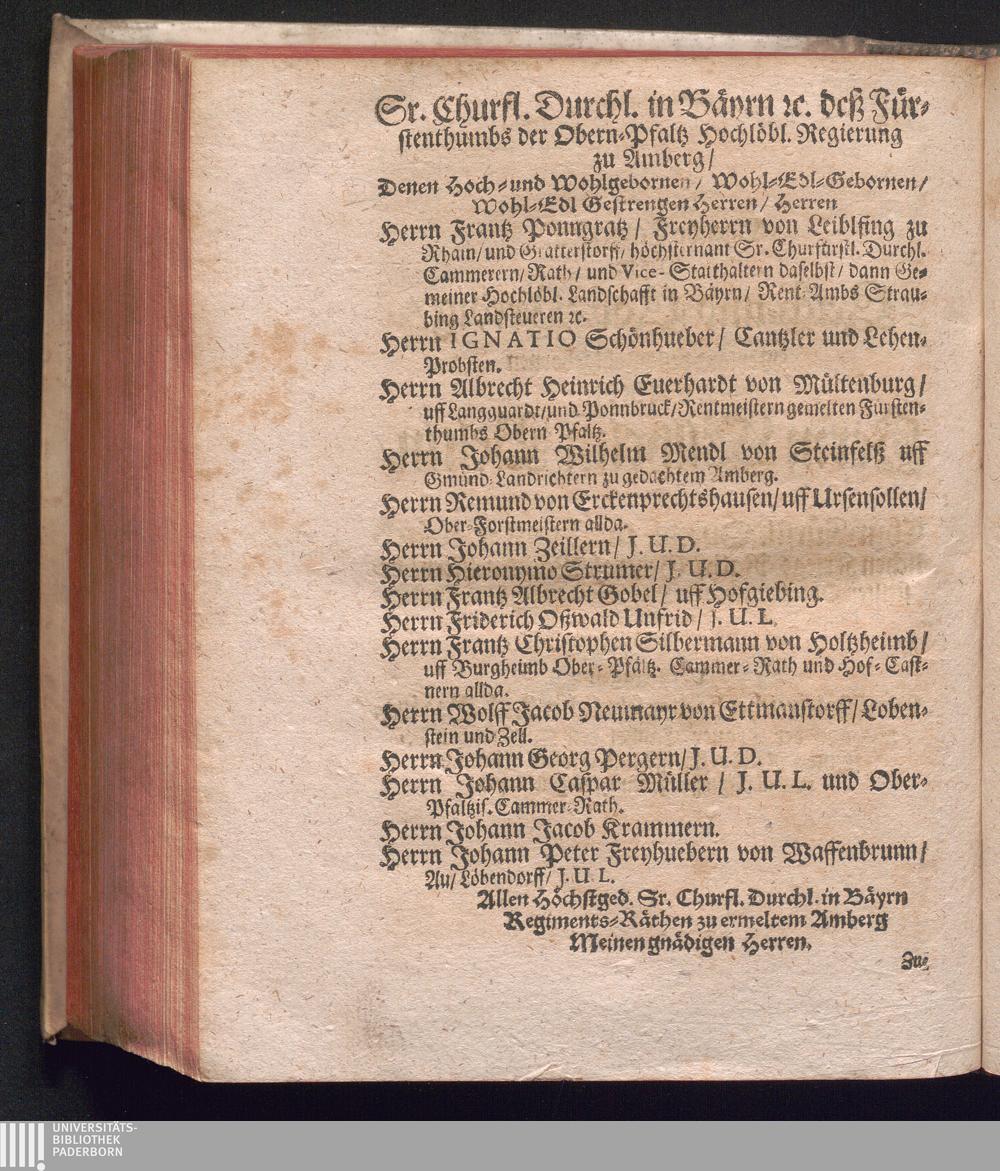 Sr. Churfl. Durchl. in Bäyrn ꝛc. deß Für-
stenthumbs der Obern-Pfaltz Hochlöbl. Regierung
zu Amberg/
Denen Hoch- und Wohlgebornen/ Wohl-Edl-Gebornen/
Wohl-Edl Gestrengen Herren/ Herren
Herrn Frantz Ponngratz/ Freyherrn von Leiblfing zu
Rhain/ und Gratterstorff/ höchsternant Sr. Churfürstl. Durchl.
Cammerern/ Rath/ und Vice-Statthaltern daselbst/ dann Ge-
meiner Hochlöbl. Landschafft in Bäyrn/ Rent-Ambs Strau-
bing Landsteueren ꝛc.
Herrn IGNATIO Schönhueber/ Cantzler und Lehen-
Probsten.
Herrn Albrecht Heinrich Euerhardt von Mültenburg/
uff Langguardt/ und Ponnbruck/ Rentmeistern gemelten Fürsten-
thumbs Obern Pfaltz.
Herrn Johann Wilhelm Mendl von Steinfelß uff
Gmünd, Landrichtern zu gedachtem Amberg.
Herrn Remund von Erckenprechtshausen/ uff Ursensollen/
Ober-Forstmeistern allda.
Herrn Johann Zeillern/ J. U. D.
Herrn Hieronymo Strumer/ J. U. D.
Herrn Frantz Albrecht Gobel/ uff Hofgiebing.
Herrn Friderich Oßwald Unfrid/ J. U. L.
Herrn Frantz Christophen Silbermann von Holtzheimb/
uff Burgheimb Ober-Pfältz. Cammer-Rath und Hof-Cast-
nern allda.
Herrn Wolff Jacob Neumayr von Ettmanstorff/ Loben-
stein und Zell.
Herrn Johann Georg Pergern/ J. U. D.
Herrn Johann Caspar Müller/ J. U. L. und Ober-
Pfältzis. Cammer-Rath.
Herrn Johann Jacob Krammern.
Herrn Johann Peter Freyhuebern von Waffenbrunn/
Au/ Löbendorff/ J. U. L.
Allen Höchstged. Sr. Churfl. Durchl. in Bäyrn
Regiments-Räthen zu ermeltem Amberg
Meinen gnädigen Herren.
Zue
UNIVERSITÄTS-
BIBLIOTHEK
PADERBORN